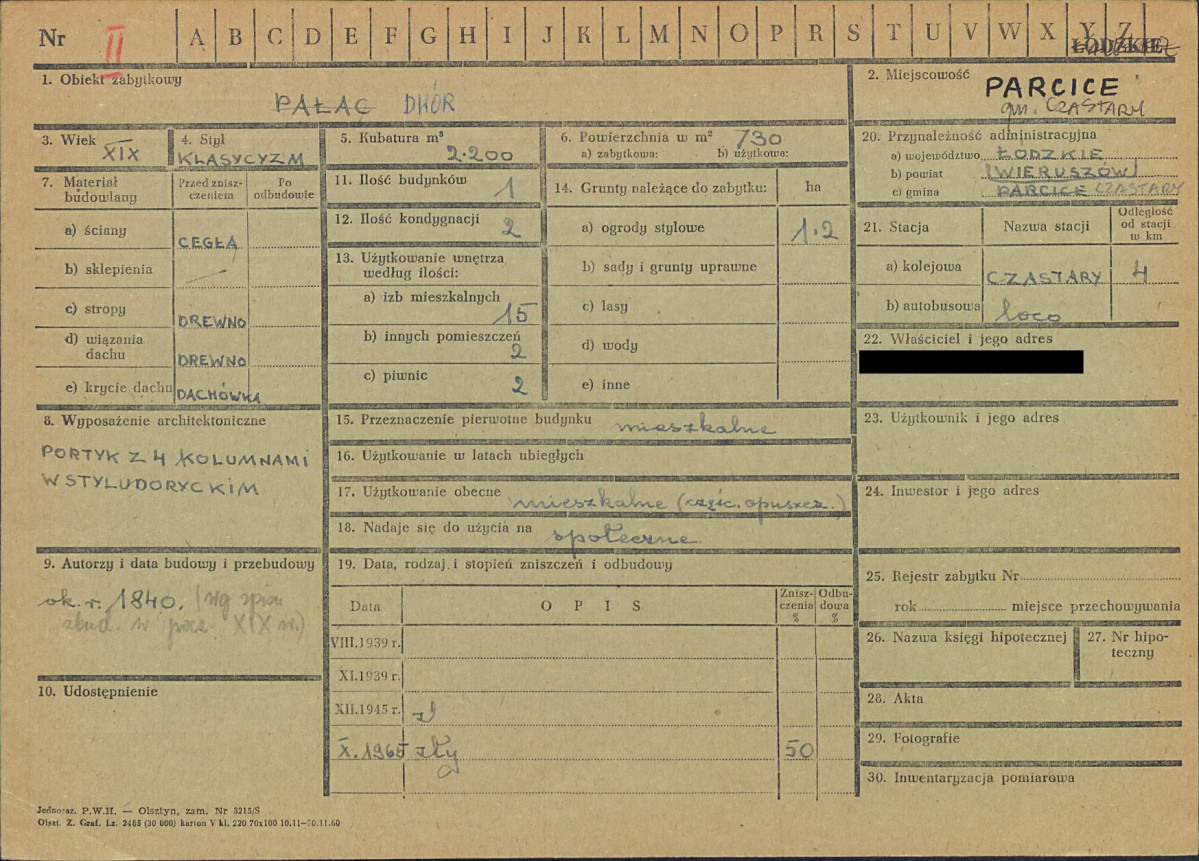 Nr II A B C D E F G H I J K L M N O P R S T U V W X Y Z
ŁÓDZKIE
1. Obiekt zabytkowy
PAŁAC DWÓR
2. Miejscowość
PARCICE
gm. CZASTARY
3. Wiek
XIX
4. Styl
KLASYCYZM
5. Kubatura m³
2.200
6. Powierzchnia w m² 730
a) zabytkowa: b) użytkowa:
20. Przynależność administracyjna
a) województwo ŁODZKIE
b) powiat (WIERUSZÓW)
c) gmina PARCICE CZASTARY
7. Materiał budowlany
Przed zniszczeniem
Po odbudowie
a) ściany CEGŁA
b) sklepienia —
c) stropy DREWNO
d) wiązania dachu DREWNO
e) krycie dachu DACHÓWKA
11. Ilość budynków 1
12. Ilość kondygnacji 2
13. Użytkowanie wnętrza
według ilości:
a) izb mieszkalnych 15
b) innych pomieszczeń 2
c) piwnic 2
14. Grunty należące do zabytku: ha
a) ogrody stylowe 1.2
b) sady i grunty uprawne
c) lasy
d) wody
e) inne
21. Stacja Nazwa stacji Odległość od stacji w km
a) kolejowa CZASTARY 4
b) autobusowa loco
22. Właściciel i jego adres
8. Wyposażenie architektoniczne
PORTYK Z 4 KOLUMNAMI
W STYLU DORYCKIM
15. Przeznaczenie pierwotne budynku mieszkalne
16. Użytkowanie w latach ubiegłych
17. Użytkowanie obecne mieszkalne (częśc. opuszcz.)
18. Nadaje się do użycia na społeczne
23. Użytkownik i jego adres
24. Inwestor i jego adres
9. Autorzy i data budowy i przebudowy
ok. r. 1840. (wg spisu
zbud. w pocz. XIX w.)
10. Udostępnienie
19. Data, rodzaj i stopień zniszczeń i odbudowy
Data O P I S Zniszczenia % Odbudowa %
VIII.1939 r.
XI.1939 r.
XII.1945 r. zł
X. 1965 zły 50
25. Rejestr zabytku Nr
rok miejsce przechowywania
26. Nazwa księgi hipotecznej
27. Nr hipoteczny
28. Akta
29. Fotografie
30. Inwentaryzacja pomiarowa
Jednoraz. P.W.H. — Olsztyn, zam. Nr 3215/S
Olszt. Z. Graf. Lz. 2485 (30 000) karton V kl. 220 70x100 10.11—30.11.60